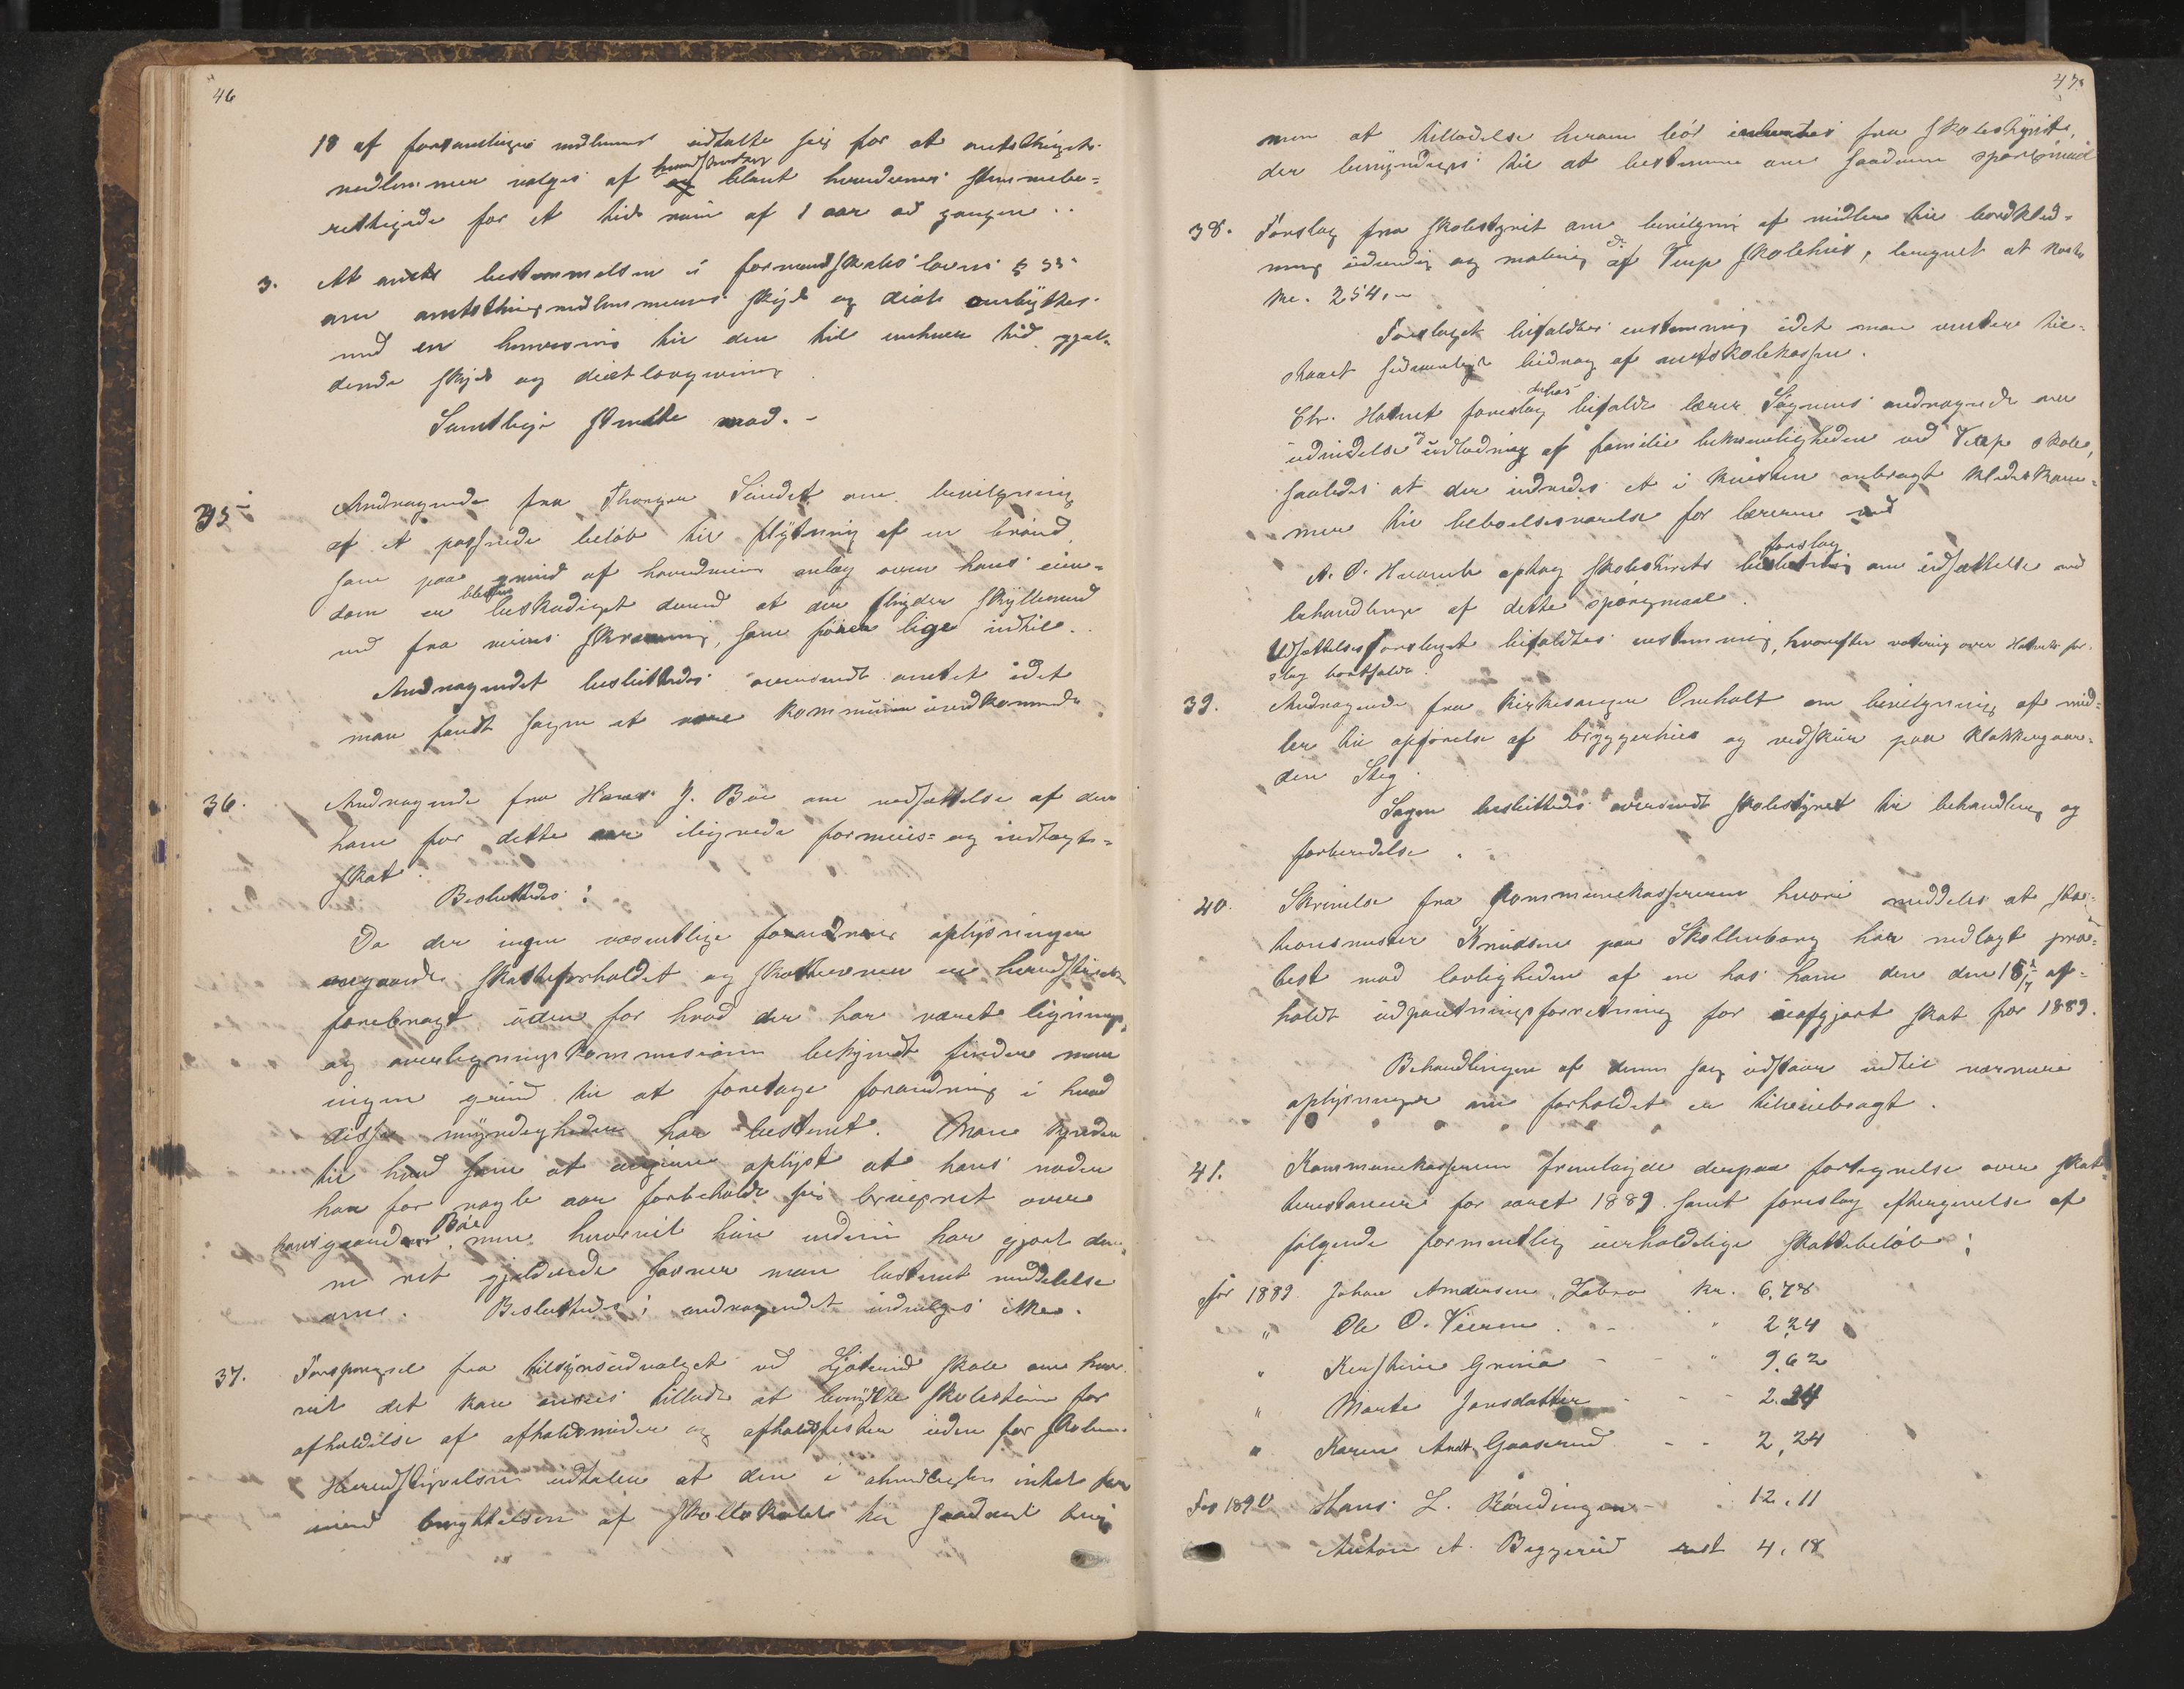 46
18 af forsamlingens medlemmer udtalte sig for at amtsthings-
medlemmer vælges af herredsstyrelsen blant herredernes stemmebe=
rettigede for et tids rum af 1 aar ad gangen.
3. At bestemmelsen i formandskabs lovens § 35
om amtsthingsmedlemmernes skyds og diæt ombyttes
med en henvisning til den til enhver tid gjæl=
dende skyds og diætlovgivning
Samtlige stemte mod. -
35 Andragende fra Thorger Sundet om bevilgning
af et passende beløb til flytning af en brønd
som paa grund af hovedveiens anlæg over hans eien=
dom er bleven beskadiget derved at der flyder skyllevand
ned fra veiens skraaning, som fører lige indtil.
Andragendet besluttedes oversendt amtet idet
man fandt sagen at være kommunen uvedkommende
36. Andragende fra Hans J. Bøe om nedsættelse af den
ham for dette aar ilignede formues= og indtægts=
skat.
Besluttedes:
Da der ingen væsentlige oplysninger
angaaende skatteforholdet og skatteevnen er herredsstyrelsen
forebragt uden for hvad der har været lignings,
og overligningskommissionen bekjendt finder man
ingen grund til at foretage forandring i hvad
disse myndigheder har bestemt. Man
til hvad som at angives oplyst at hans moder
har for nogle aar forbeholdt sig brugsret over
hans gaard Bøe, men hvorvidt hun endnu har gjort den=
ne ret gjeldende savner man bestemt meddelelse
om. Besluttedes: andragendet indvilges ikke.
37. Forespørgsel fra tilsynsudvalget ved skole om hvor
vidt det kan ansees tilladt at benytte skolestuen for
afholdelse af afholdsmøder og afholdsfester uden for skolen.
Herredsstyrelsen udtaler at den i almindelighed intet har
imod benyttelsen af skolelokaler til saadant brug
47
men at tilladelse herom bør indhentes fra skolestyret,
der bemyndiges til at bestemme om saadanne spørgsmaal
38. Forslag fra skolestyret om bevilgning af midler til bordklæd=
ning udvendig og maling af Teigs skolehus, beregnet at koste
kr. 254,-
Forslaget bifaldtes enstemmig idet man venter til=
skudt sædvanlige bidrag af amtsskolekassen.
Chr. Hatvet foreslog derhos bifaldt lærer Søgnens andragende om
udvidelse og udlodning af familie bekvemmeligheden ved Teigs skole,
saaledes at der indredes et i kvisten anbragt klædeskam=
mer til beboelsesværelse for læreren
A. O. optog skolestyrets forslag om udsættelse med
behandlingen af dette spørgsmaal.
Udsættelsesforslaget bifaldtes enstemmig, hvorefter votering over Hatvets for=
slag bortfaldt.
39. Andragende fra kirkesanger Omholt om bevilgning af mid=
ler til opførelse af bryggerhus og vedskur paa klokkergaar=
den Steg.
Sagen besluttedes oversendt skolestyret til behandling og
forberedelse.
40. Skrivelse fra kommunekassereren hvori meddeles at sta=
tionsmester Knudsen paa Skollenborg har nedlagt pro=
test mod lovligheden af en hos ham den afholdt
udpantningsforretning for uafgjort skat for 1889.
Behandlingen af denne sag udstaar indtil nærmere
oplysninger om forholdet er tilveiebragt.
41. Kommunekassereren fremlagde derpaa fortegnelse over skat=
terestancer for aaret 1889 samt foreslog eftergivelse af
følgende formentlig uerholdelige skattebeløb:
for 1889. Johan Andersen, Labro kr. 6,78
" Ole O. - " 2,24
" Kirstine - - " 9,62
" Marte Jonsdatter - - - 2.24
" Karen Andr. Gaaserud - - 2,24
For 1890 Hans L. - 12.11
Anton A. Beggerud rest 4,18